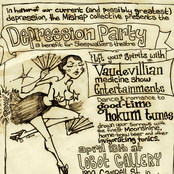 in honor of our current (and possibly greatest)
depression, the Mishap collective presents the
Depression Party
a benefit for Sleepwalkers theatre
lift your spirits with
Vaudevillian
medicine show
Entertainments
Dance & romance to
good-time
hokum tunes
drown your sorrows with
the finest Moonshine,
home-brew beer and other
invigorating tonics.
april 18th at
Lobot GALLERY
1800 Campbell St.